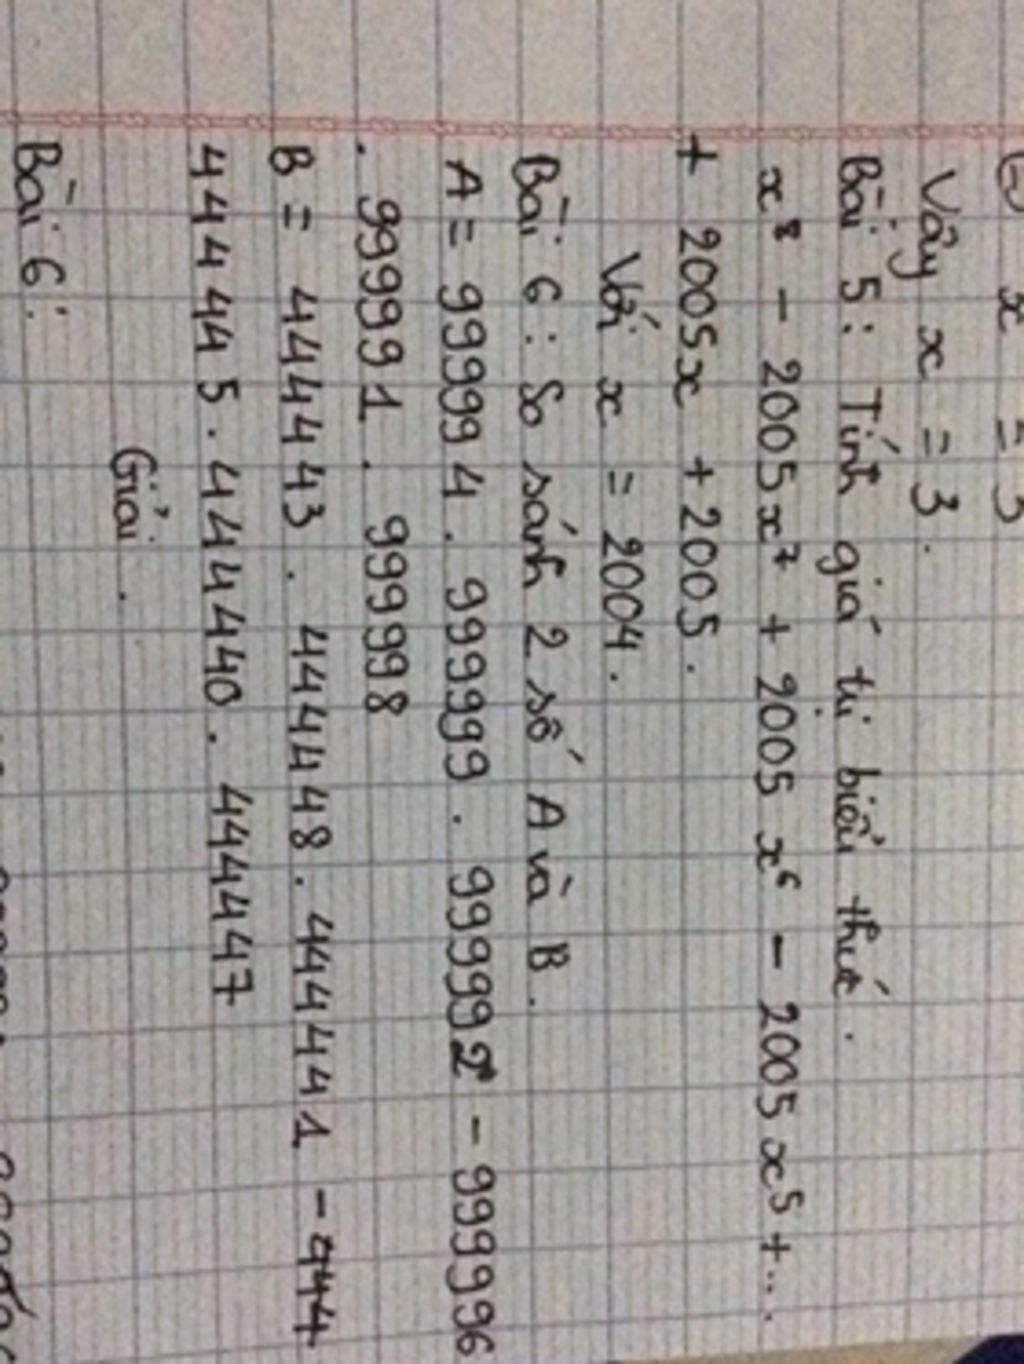 x = 3
Vậy x = 3.
Bài 5: Tính giá trị biểu thức.
x⁸ - 2005x⁷ + 2005x⁶ - 2005x⁵ + ....
+ 2005x + 2005.
Với x = 2004.
Bài 6: So sánh 2 số A và B.
A = 999994 . 999999 . 999992 - 999996
. 999991 . 999998
B = 444443 . 444448 . 444441 -
444445 . 444440 . 444447
Giải.
Bài 6: